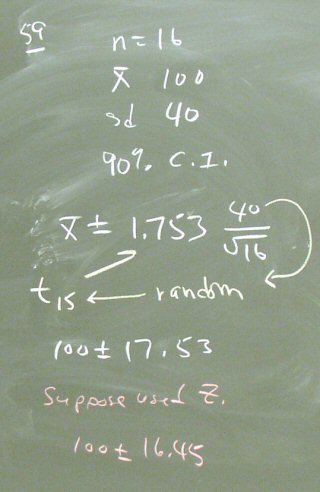 59
n = 16
x̄ 100
sd 40
90% C.I.
x̄ ± 1.753 40/√16
t₁₅ ← random
100 ± 17.53
Suppose used Z.
100 ± 16.45